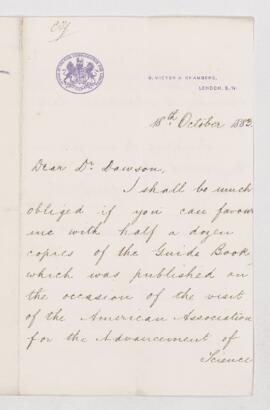 9, VICTORIA CHAMBERS,
LONDON, S.W.
18th October 1883.
Dear Dr. Dawson,
I shall be much
obliged if you can favour
me with half a dozen
copies of the Guide Book
which was published on
the occasion of the visit
of the American Association
for the Advancement of
Science